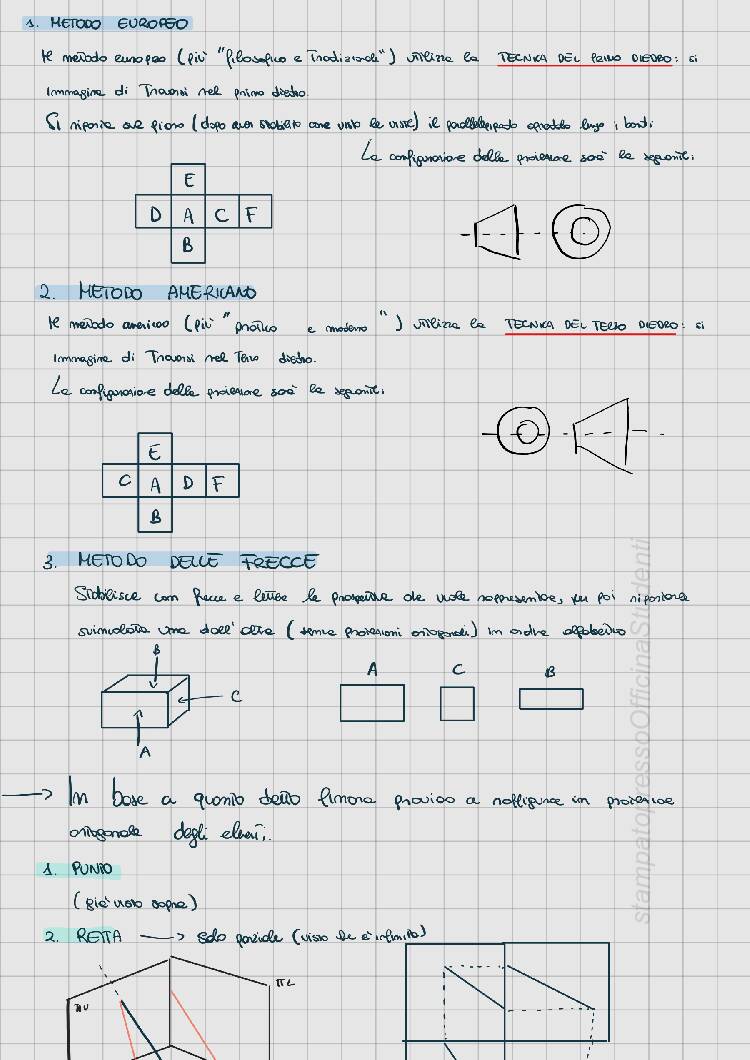 1. METODO EUROPEO
Il metodo europeo (più "filosofico e tradizionale") utilizza la TECNICA DEL PRIMO DIEDRO: si
immagina di trovarsi nel primo diedro.
Si riporta sul piano (dopo aver stabilito come visto le viste) il parallelepipedo aprendolo lungo i bordi.
La configurazione delle proiezioni sarà la seguente:
E
D A C F
B
2. METODO AMERICANO
Il metodo americano (più "pratico e moderno") utilizza la TECNICA DEL TERZO DIEDRO: si
immagina di trovarsi nel terzo diedro.
La configurazione delle proiezioni sarà la seguente:
E
C A D F
B
3. METODO DELLE FRECCE
Stabilisce con frecce e lettere le prospettive che vuole rappresentare, per poi riportarle
svincolate una dall'altra (senza proiezioni ortogonali) in ordine alfabetico
B
C
A
A C B
→ In base a quanto detto finora provino a raffigurare in proiezione
ortogonale degli elementi.
1. PUNTO
(già visto sopra)
2. RETTA → solo parziale (visto che è infinita)
πV
πL
stampatopressoOfficinaStudenti